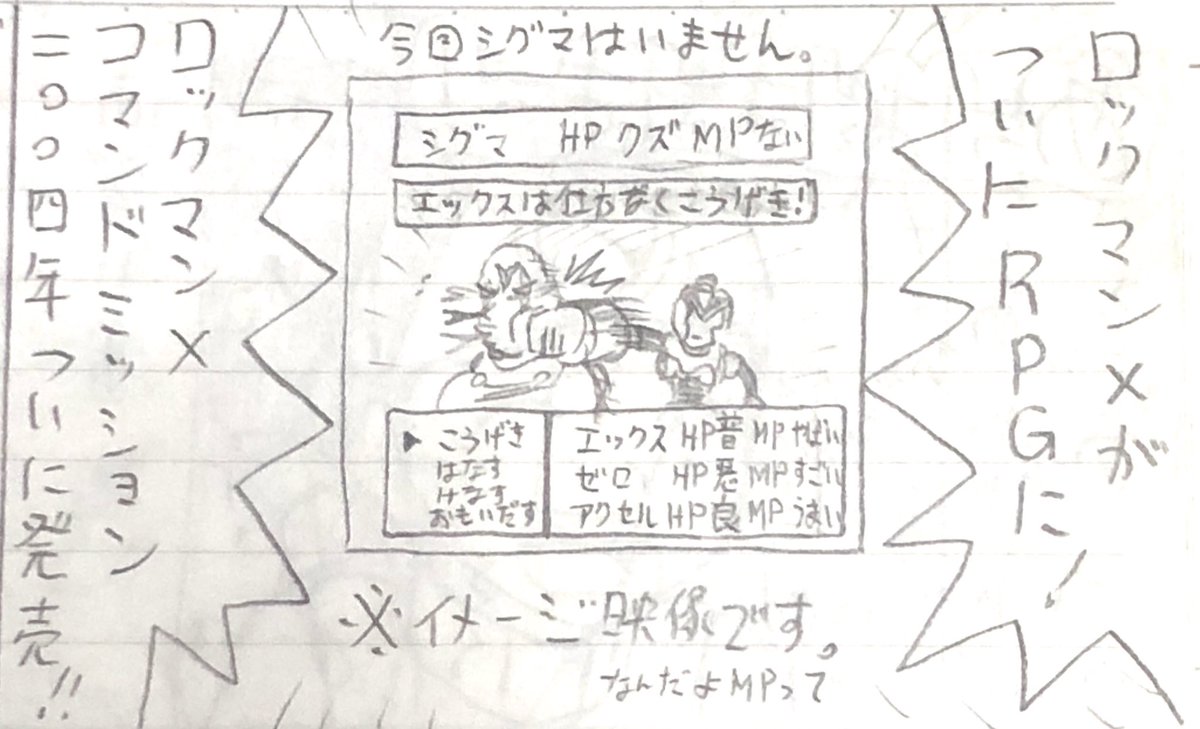 ロックマンXが
ついにRPGに!
今回シグマはいません。
シグマ HP クズ MPない
エックスは仕方なくこうげき!
▶こうげき
はなす
けなす
おもいだす
エックス HP普 MPやばい
ゼロ HP悪 MPすごい
アクセル HP良 MPうまい
※イメージ映像です。
なんだよMPって
ロックマンX
コマンドミッション
二〇〇四年ついに発売!!